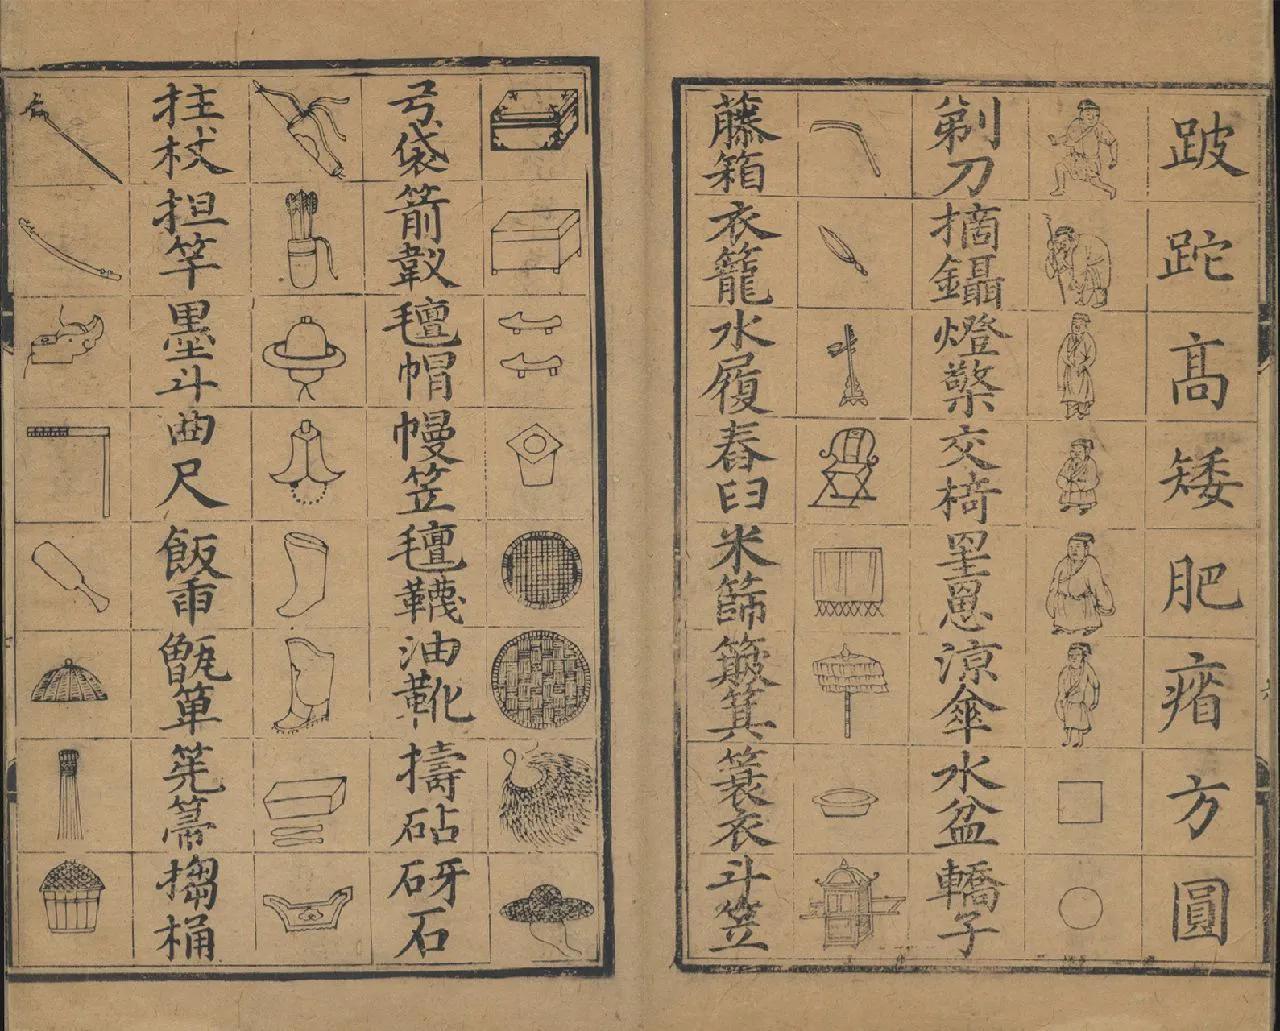 跛跎高矮肥瘠方圓
剃刀摘鑷燈檠交椅罣罳涼傘水盆轎子
藤箱衣籠水履舂臼米篩簸箕簑衣斗笠
弓袋箭靫氊帽幔笠氊韈油靴擣砧砑石
拄杖担竿墨斗曲尺飯臿甑箄筅箒搊桶